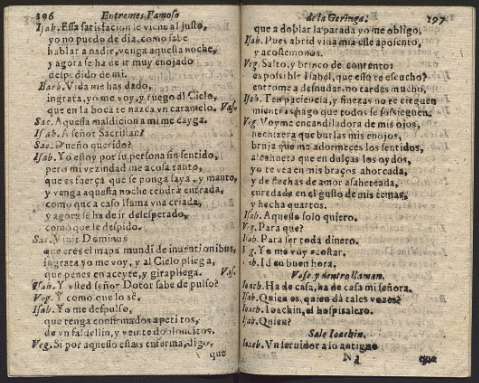 196 Entremes Famoso
Isab. Essa satisfacion le viene al justo,
yo no puedo de dia, como sabe
hablar a nadie, venga aquesta noche,
y agora se ha de ir muy enojado
despedido de mi.
Barb. Vida me has dado,
ingrata, yo me voy, y ruego al Cielo,
que en la boca te nazca vn caramelo. Vas.
Sac. Aquessa maldicion a mi me cayga.
Isab. A señor Sacristan?
Sac. Dueño querido?
Isab. Yo estoy por su persona sin sentido,
pero mi vezindad me acosa tanto,
que es fuerça que se ponga saya, y manto,
y venga aquesta noche tendrá entrada,
como que a caso llama vna criada,
y agora se ha de ir desesperado,
como que le despido.
Sac. Dominus
que eres el mapa mundi de inuentionibus,
ingrata yo me voy, y al Cielo pliega,
que penes en aceyte, y girapliega. Vas.
Isab. Y vsted señor Dotor sabe de pulso?
Veg. Y como que lo sè.
Isab. Yo me despulso,
que tengo con mis apetitos,
de vn faldellin, y
Veg. Si por aquesso estais enferma, digo,
que
de la Geringa. 197
que a doblar la parada yo me obligo.
Isab. Pues abrid vna mi esse aposento,
y acostemonos.
Veg. Salto, y brinco de contentos
es possible Isabel, que esso te escucho?
entrome a desnudar, no tardes mucho,
Isab. Ten paciencia, y finezas no te cieguen
mientras hago que todos se sossieguen.
Veg. Voyme encandiladora de mis ojos,
hechizera que burlas mis enojos,
bruja que me adormeces los sentidos,
alcahueta que endulças los oydos,
yo te vea en mis braços ahorcada,
y de flechas de amor asaeteada,
y hecha quartos.
Isab. Aquesso solo quiero.
Veg. Para que?
Isab. Para ser toda dinero.
Veg. Yo me voy acostar.
Isab. Id en buen hora.
Vase y dentro llaman.
Ioach. Ha de casa, ha de casa mi señora.
Isab. Quien es, quien dá tales vozes?
Ioach. Ioachin, el hospitalero.
Isab. Quien?
Sale Ioachin.
Ioach. Vn seruidor a lo antiguo
N 3 que